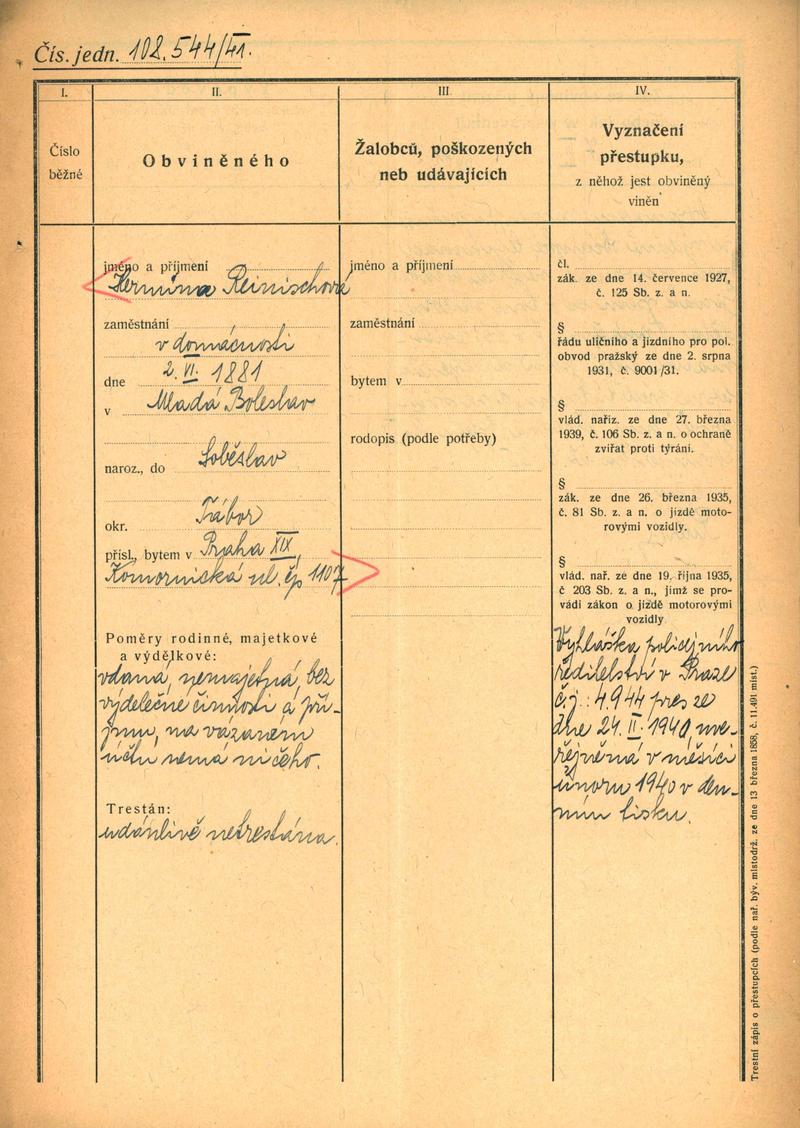 Čís. jedn. 102.544/41.
I.
Číslo
běžné
II.
Obviněného
III
Žalobců, poškozených
neb udávajících
IV.
Vyznačení
přestupku,
z něhož jest obviněný
viněn
jméno a příjmení
Hermina Reinischová
zaměstnání
v domácnosti
dne 2. VI. 1881
v Mladá Boleslav
naroz., do Soběslav
okr. Tábor
přísl., bytem v Praha XIX,
Komornická ul. čp 1107
Poměry rodinné, majetkové
a výdělkové:
vdaná, nemajetná, bez
výdělečné činnosti a pří-
jmu, na vázaném
účtu nemá ničeho.
Trestán:
údánlivě netrestána.
jméno a příjmení
zaměstnání
bytem v
rodopis (podle potřeby)
čl.
zák. ze dne 14. července 1927,
č. 125 Sb. z. a n.
§
řádu uličního a jízdního pro pol.
obvod pražský ze dne 2. srpna
1931, č. 9001/31.
§
vlád. naříz. ze dne 27. března
1939, č. 106 Sb. z. a n. o ochraně
zvířat proti týrání.
§
zák. ze dne 26. března 1935,
č. 81 Sb. z. a n. o jízdě moto-
rovými vozidly.
§
vlád. nař. ze dne 19. října 1935,
č 203 Sb. z. a n., jímž se pro-
vádí zákon o jízdě motorovými
vozidly
Vyhláška policejního
ředitelství v Praze
č.j.: 4.944 pres ze
dne 24. II. 1940, uve-
řejněná v měsíci
únoru 1940 v den-
ním tisku.
Trestní zápis o přestupcích (podle nař. býv. místodrž. ze dne 13 března 1858, č. 11.491 míst.)